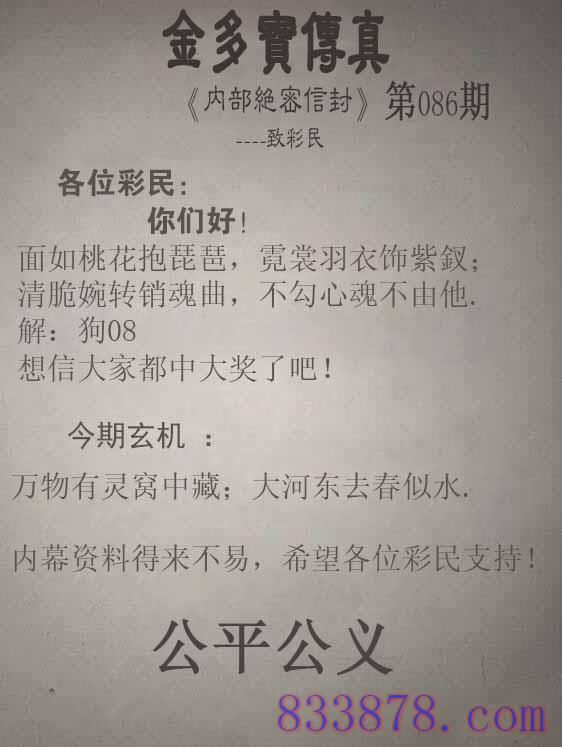 金多寶傳真
《内部絕密信封》第086期
----致彩民
各位彩民:
你们好!
面如桃花抱琵琶，霓裳羽衣饰紫釵；
清脆婉转销魂曲，不勾心魂不由他.
解：狗08
想信大家都中大奖了吧！
今期玄机 ：
万物有灵窝中藏；大河东去春似水.
内幕资料得来不易，希望各位彩民支持！
公平公义
833878.com